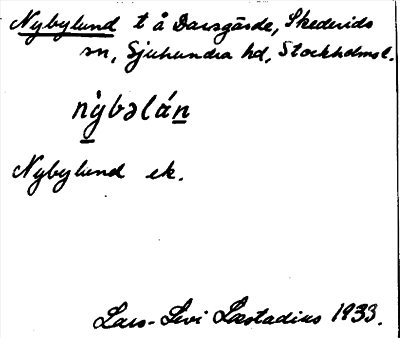 Nybylund t å Darsgärde, Skederids
sn, Sjuhundra hd, Stockholmsl.
nỳbəlán
Nybylund ek.
Lars-Levi Læstadius 1933.